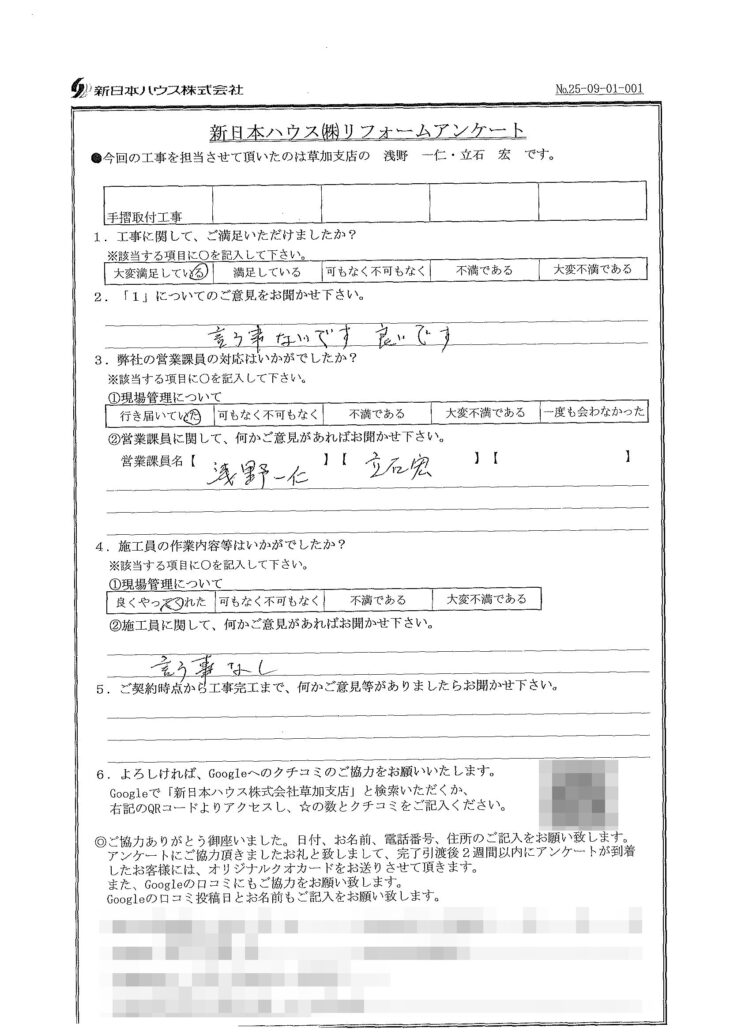 新日本ハウス株式会社
№25-09-01-001
新日本ハウス㈱リフォームアンケート
●今回の工事を担当させて頂いたのは草加支店の 浅野 一仁・立石 宏 です。
手摺取付工事
1．工事に関して、ご満足いただけましたか？
※該当する項目に○を記入して下さい。
大変満足している 満足している 可もなく不可もなく 不満である 大変不満である
2．「1」についてのご意見をお聞かせ下さい。
言う事ないです 良いです
3．弊社の営業課員の対応はいかがでしたか？
※該当する項目に○を記入して下さい。
①現場管理について
行き届いていた 可もなく不可もなく 不満である 大変不満である 一度も会わなかった
②営業課員に関して、何かご意見があればお聞かせ下さい。
営業課員名【 浅野一仁 】【 立石宏 】【 】
4．施工員の作業内容等はいかがでしたか？
※該当する項目に○を記入して下さい。
①現場管理について
良くやってくれた 可もなく不可もなく 不満である 大変不満である
②施工員に関して、何かご意見があればお聞かせ下さい。
言う事なし
5．ご契約時点から工事完工まで、何かご意見等がありましたらお聞かせ下さい。
6．よろしければ、Googleへのクチコミのご協力をお願いいたします。
Googleで「新日本ハウス株式会社草加支店」と検索いただくか、
右記のQRコードよりアクセスし、☆の数とクチコミをご記入ください。
◎ご協力ありがとう御座いました。日付、お名前、電話番号、住所のご記入をお願い致します。
アンケートにご協力頂きましたお礼と致しまして、完了引渡後２週間以内にアンケートが到着
したお客様には、オリジナルクオカードをお送りさせて頂きます。
また、Googleの口コミにもご協力をお願い致します。
Googleの口コミ投稿日とお名前もご記入をお願い致します。